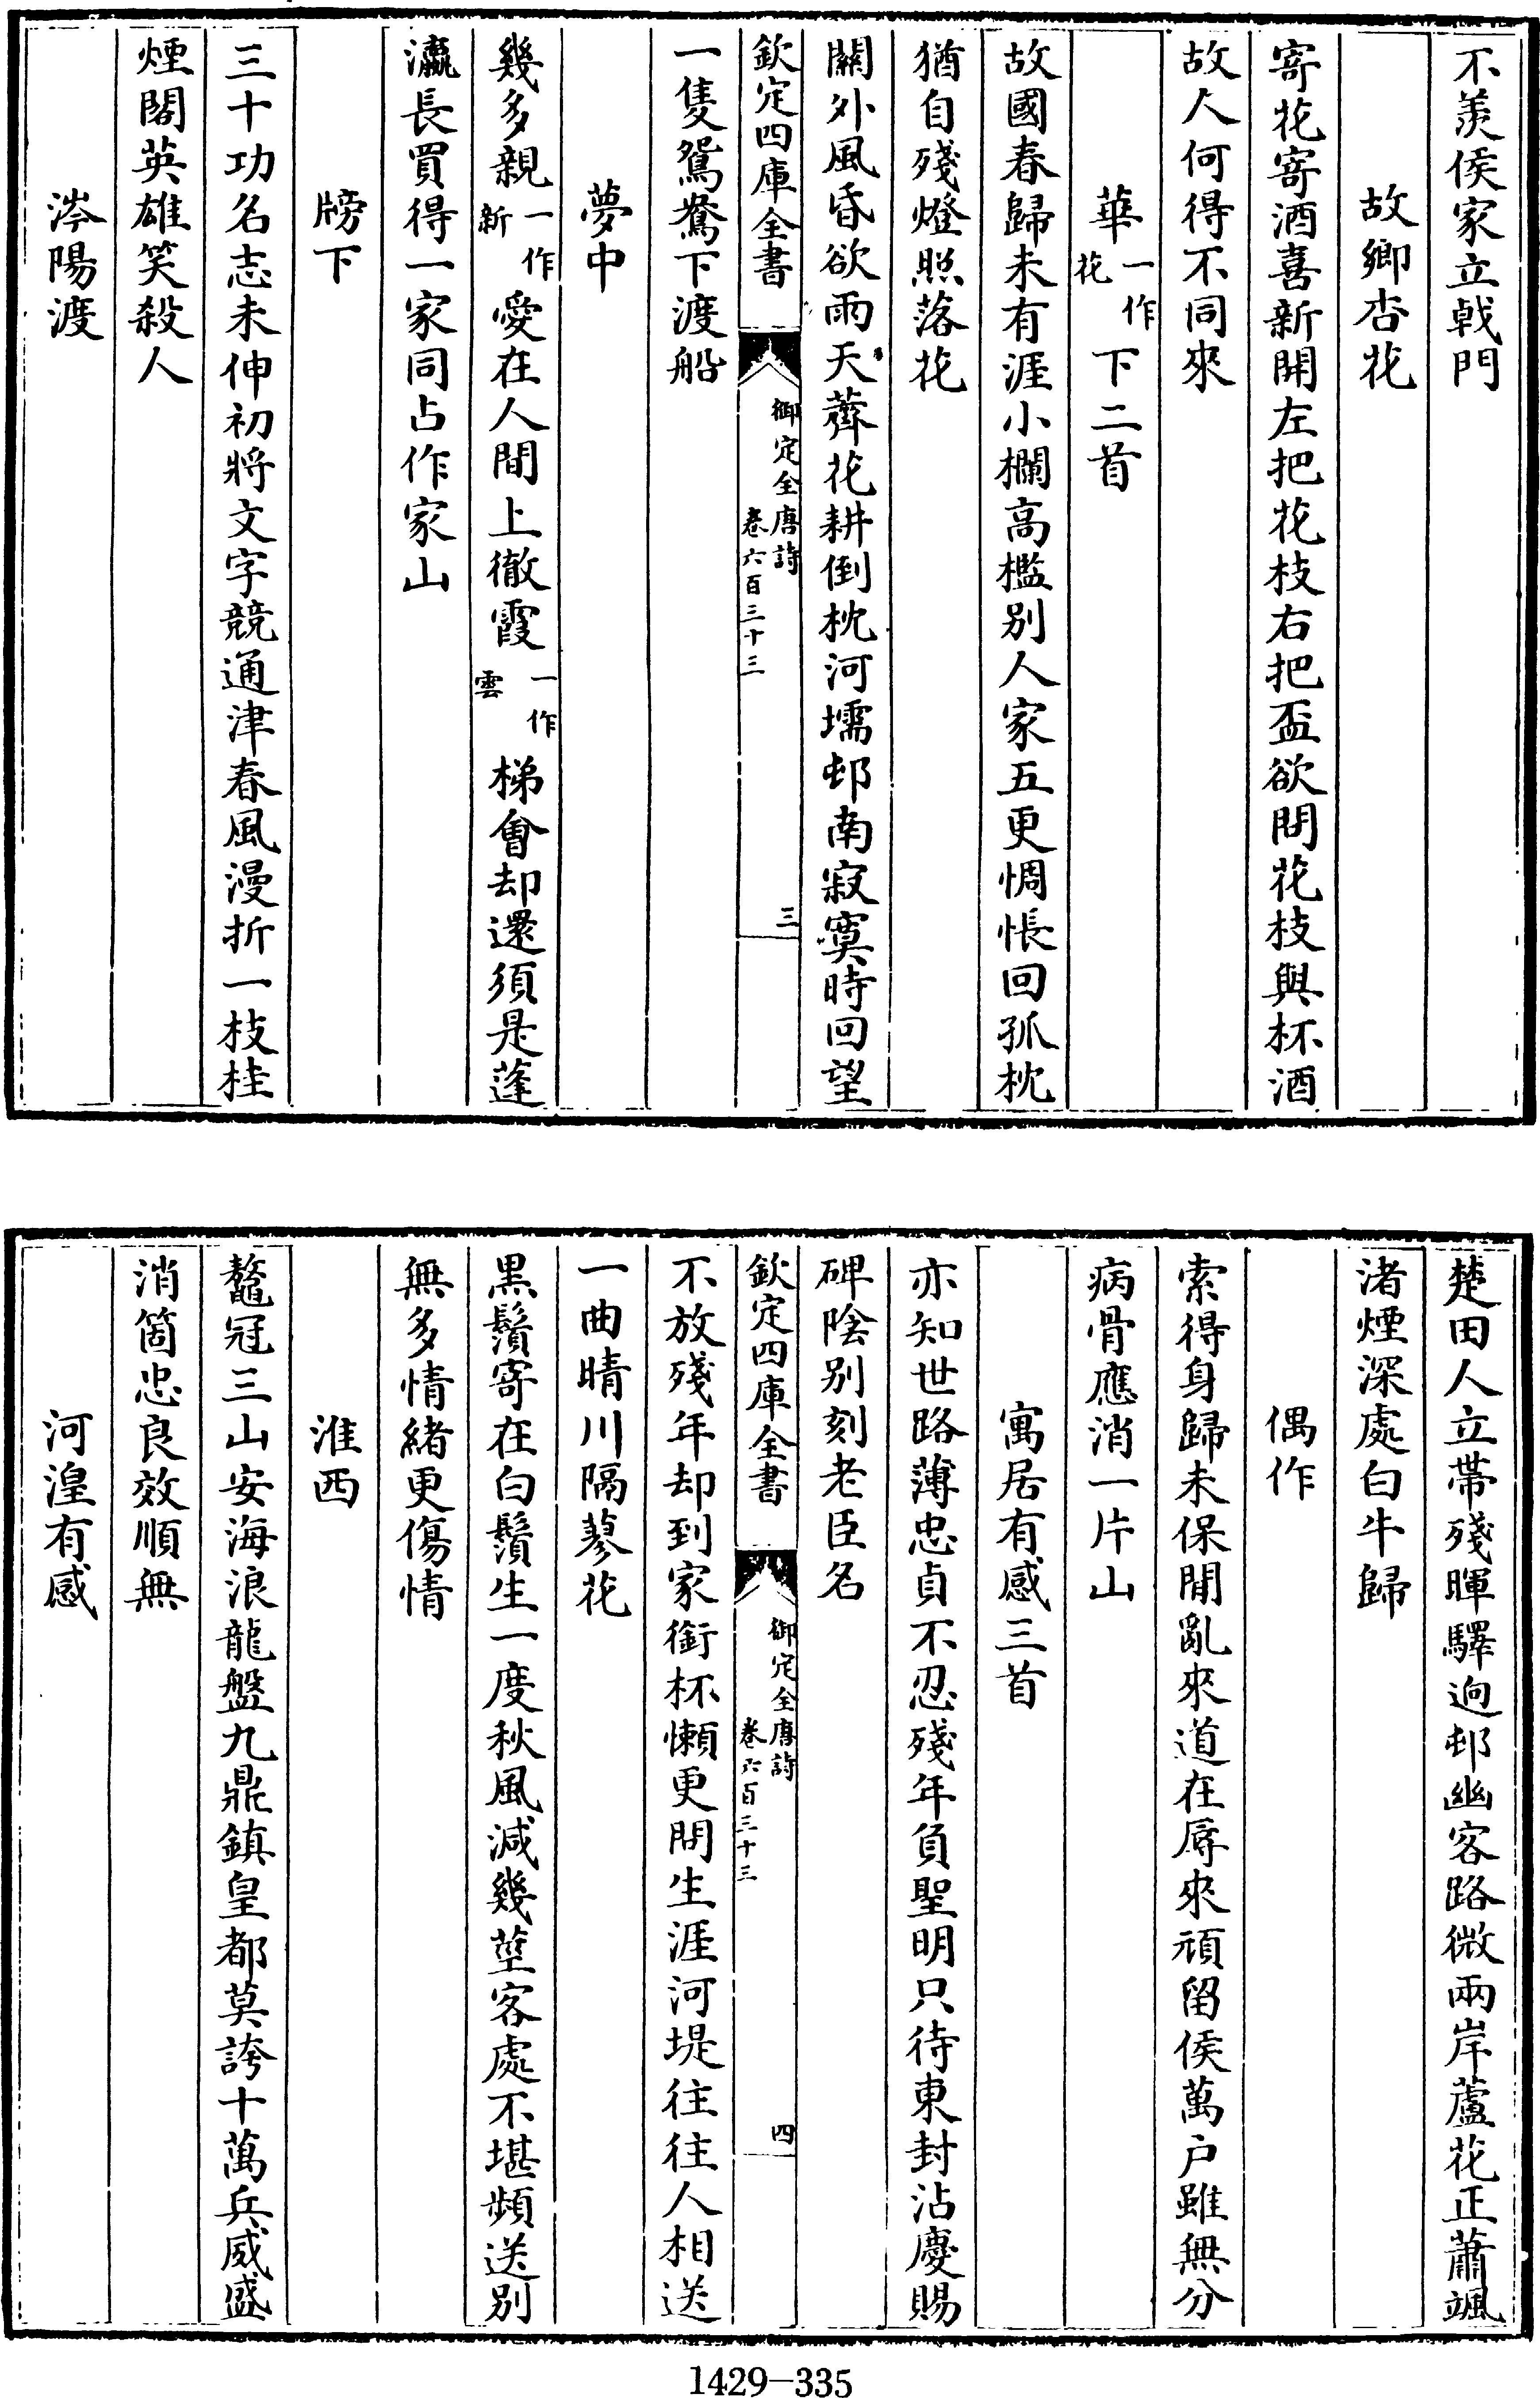 不羨侯家立戟門
故鄉杏花
寄花寄酒喜新開左把花枝右把盃欲問花枝與杯酒
故人何得不同來
華一作花下二首
故國春歸未有涯小欄高檻别人家五更惆悵回孤枕
猶自殘燈照落花
關外風昏欲雨天薺花耕倒枕河壖邨南寂寞時回望
欽定四庫全書
御定全唐詩
卷六百三十三
三
一隻鴛鴦下渡船
夢中
幾多親一作新愛在人間上徹霞一作雲梯㑹却還須是蓬
瀛長買得一家同占作家山
牓下
三十功名志未伸初將文字競通津春風漫折一枝桂
煙閣英雄笑殺人
涔陽渡
楚田人立帶殘暉驛逈邨幽客路微兩岸蘆花正蕭颯
渚煙深處白牛歸
偶作
索得身歸未保閒亂來道在辱來頑留侯萬户雖無分
病骨應消一片山
寓居有感三首
亦知世路薄忠貞不忍殘年負聖明只待東封沾慶賜
碑陰别刻老臣名
欽定四庫全書
御定全唐詩
卷六百三十三
四
不放殘年却到家銜杯懶更問生涯河堤往往人相送
一曲晴川隔蓼花
黒鬚寄在白鬚生一度秋風減幾莖客處不堪頻送别
無多情緒更傷情
淮西
鼇冠三山安海浪龍盤九鼎鎮皇都莫誇十萬兵威盛
消箇忠良效順無
河湟有感
1429-335